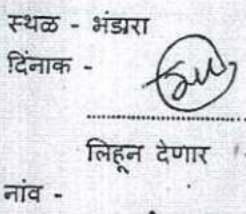 स्थळ - भंडारा
दिंनाक -
लिहून देणार
नांव -